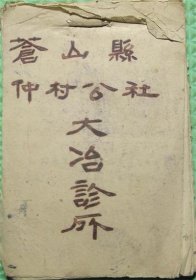 蒼山縣
仲村公社
大冶診所